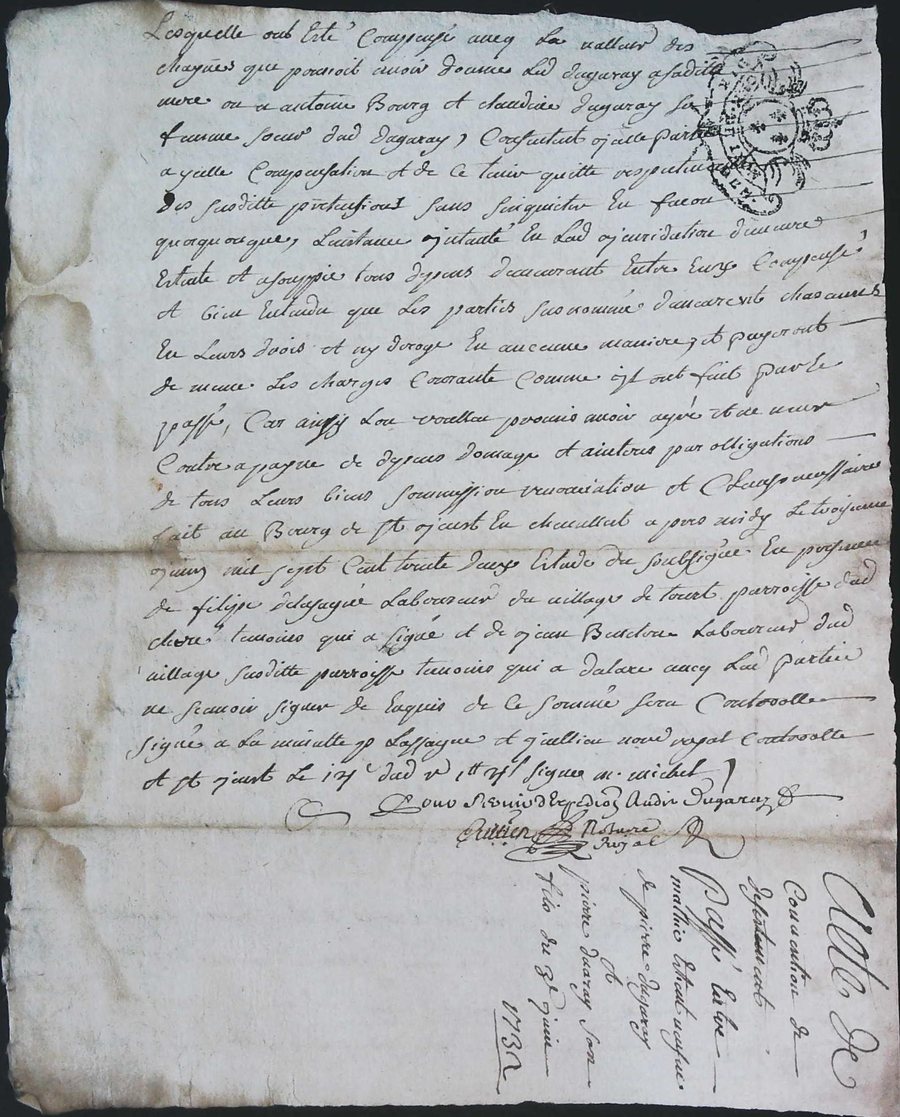 Lesquelle ont Esté Compensé avecq La valleur des
chaynes que pouvoit avoir donne Led dugaray a sadille
mere ou a antoine Bourg et claudine dugaray sa
famme soeur dud Dugaray, Consentent ojcelle partie
a ycelle Compensation et de ce tenir quitte respective
des susditte prétentions sans sinquiéter En facon
quoyquonque, Laistance ojntanté En Lad ojuridation demeure
Estainte et asouppie tous depens demeurant Entre Eux Compensé
et bien Entendu que Les parties susnommé demeurent chascunes
En Leurs drois et ny deroge En aucune maniere, et payeront
de meme Les charges Courante Comme ojl ont fait par Le
passé, Car ainsy Lon voullu promis avoir agré et ne venir
Contre a payne de depens domage et ainterets par obligations
de tous Leurs biens soummission renonciation et Clause nessaires
fait au Bourg de st ojust En chevallet apres midy Le troisieme
ojuin mil sept Cent trente deux Estude du soussigne En presence
de filipe delasagne Laboureur du village de tourt parroisse dud
chere temoins qui a signé et de ojean Laboureur dud
village susditte parroisse temoins qui a delare avecq Lad partie
ne scavoir signer de Enquis de ce sommé sera Controolle
signé a La minutte p Lassagne et ojullien nore royal Controolle
et st ojust Le 14e dud signe m. michel
Pour d'Expedion Audit Dugaray
Jullien Notaire
Royal
Acte de
Convention de
departement
Passé Entre
mathie
de pierre dugarey
et
pierre dugaray son
fils du 3e ojuin
1732